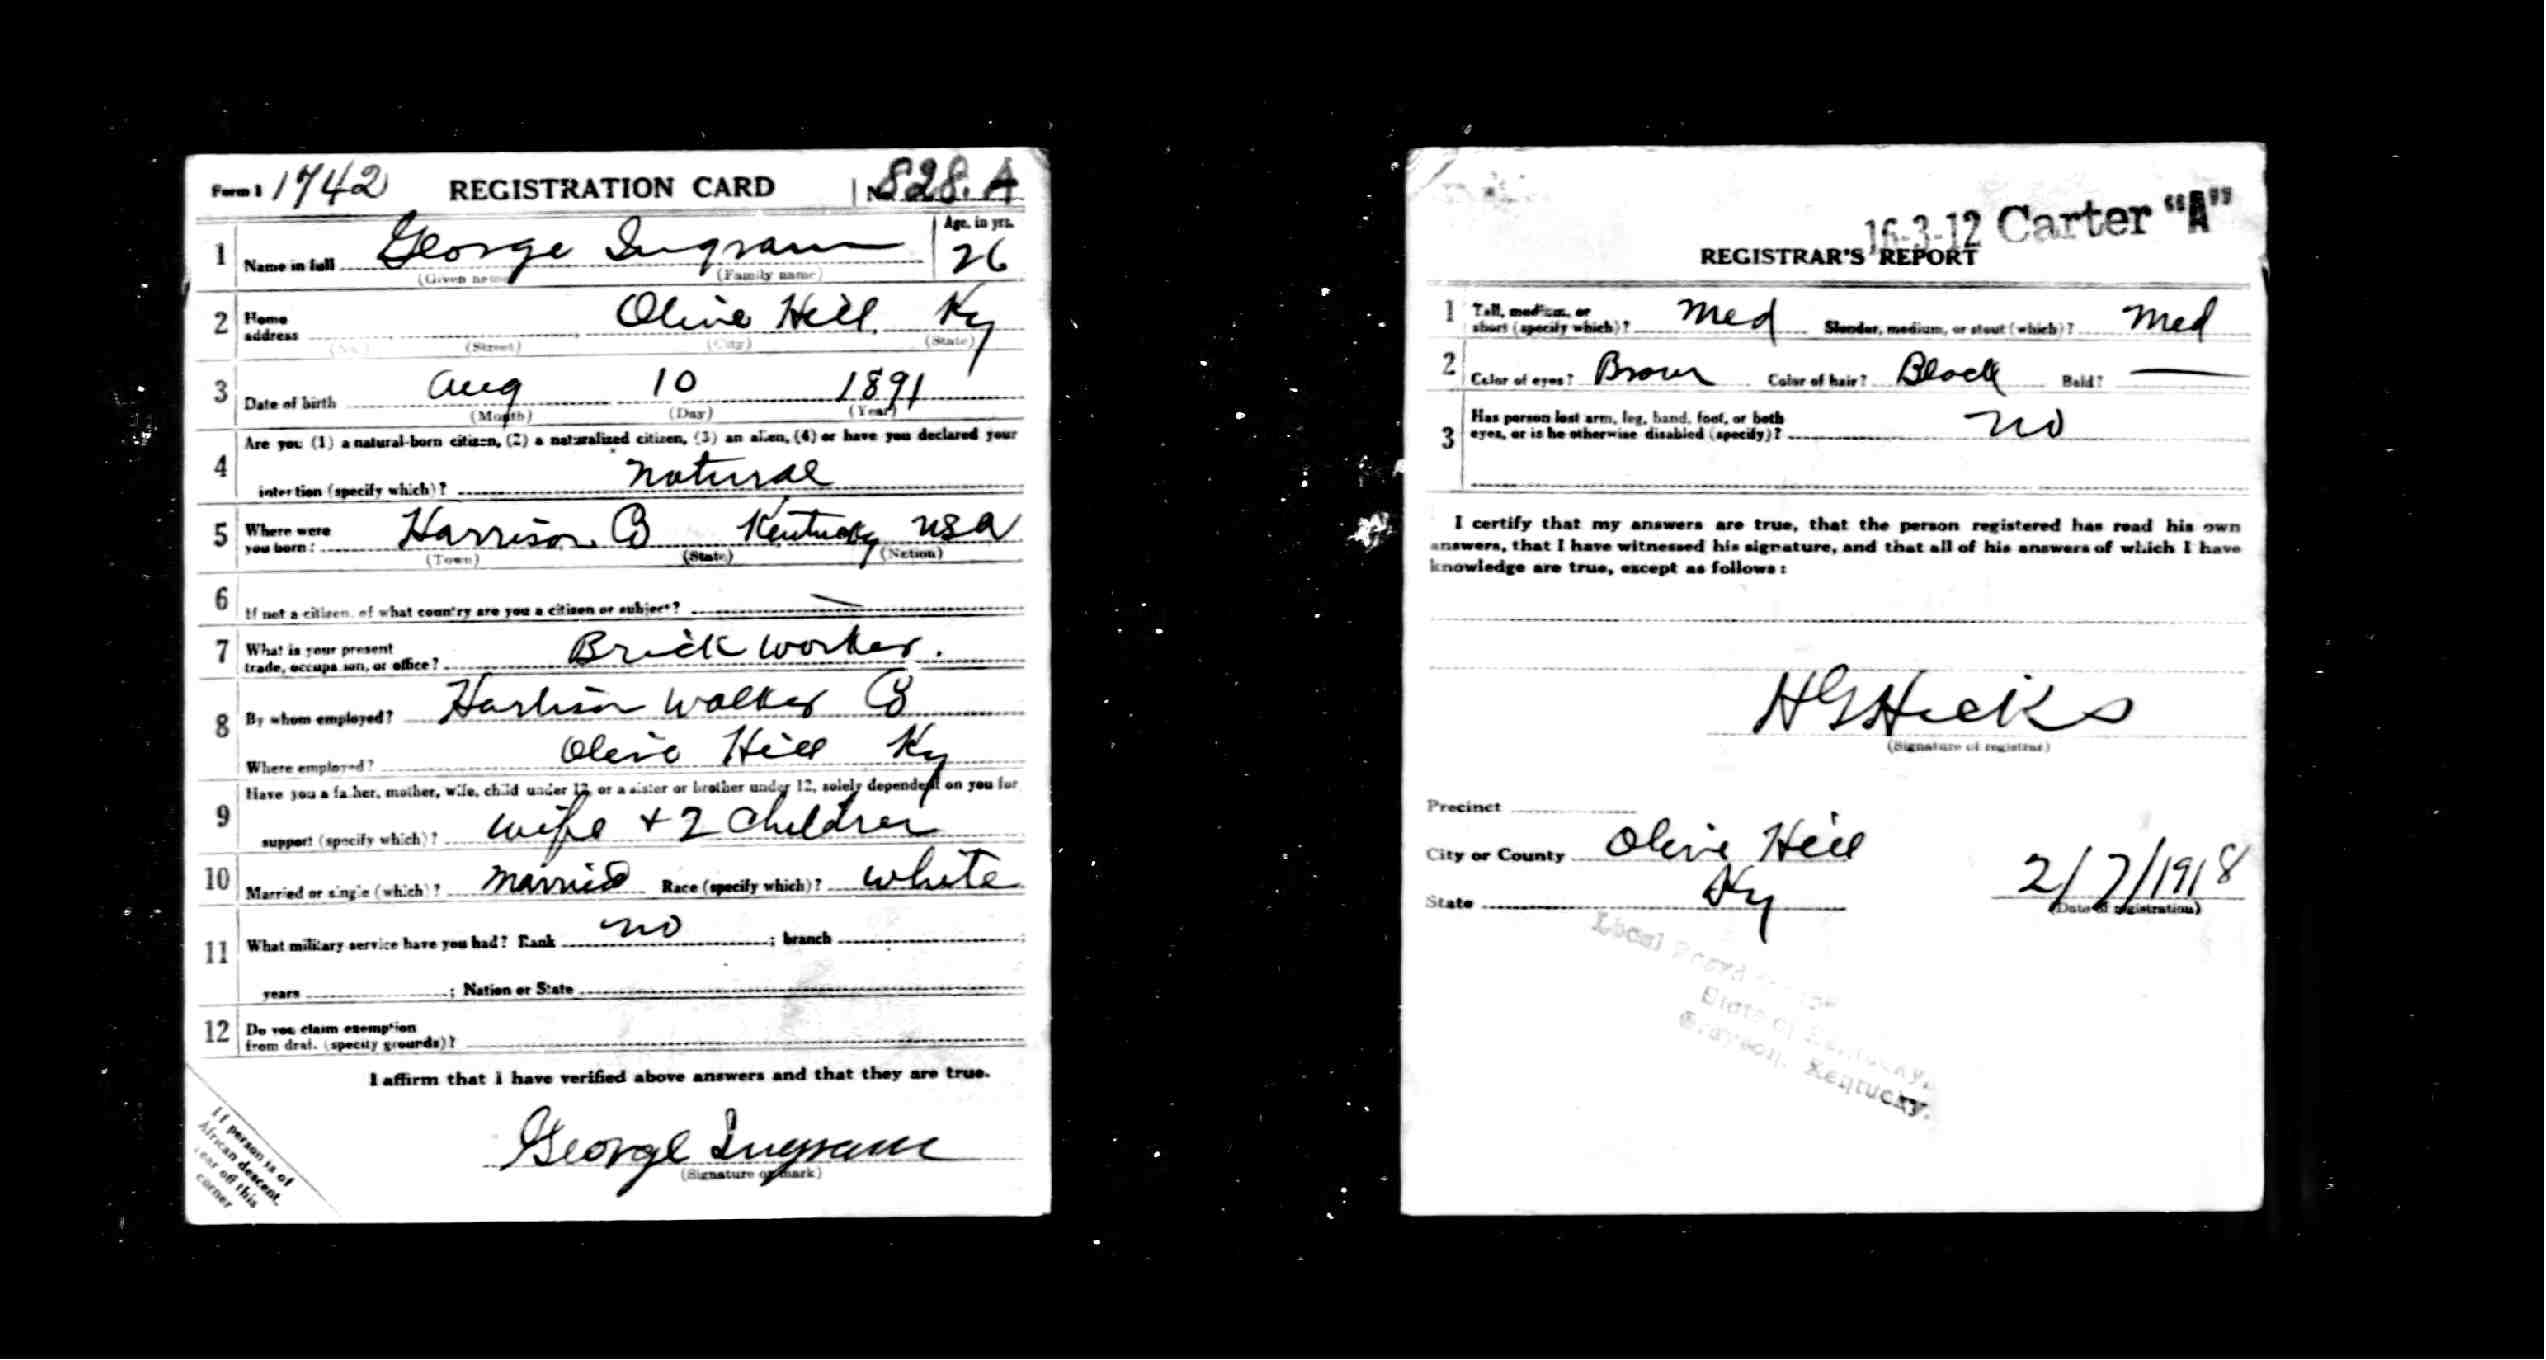 Form 1 1742 REGISTRATION CARD No. 828 A
1 Name in full George Ingram Age, in yrs. 26
(Given name) (Family name)
2 Home address Olive Hill Ky
(No.) (Street) (City) (State)
3 Date of birth Aug 10 1891
(Month) (Day) (Year)
4 Are you (1) a natural-born citizen, (2) a naturalized citizen, (3) an alien, (4) or have you declared your
intention (specify which)? natural
5 Where were you born? Harrison Co Kentucky USA
(Town) (State) (Nation)
6 If not a citizen, of what country are you a citizen or subject? —
7 What is your present
trade, occupation, or office? Brick worker.
8 By whom employed? Harbison Walker Co
Where employed? Olive Hill Ky
9 Have you a father, mother, wife, child under 12, or a sister or brother under 12, solely dependent on you for
support (specify which)? wife + 2 children
10 Married or single (which)? married Race (specify which)? white
11 What military service have you had? Rank no ; branch
years ; Nation or State
12 Do you claim exemption
from draft (specify grounds)?
I affirm that I have verified above answers and that they are true.
George Ingram
(Signature or mark)
If person is of
African descent,
tear off this
corner
16-3-12 Carter "A"
REGISTRAR'S REPORT
1 Tall, medium, or
short (specify which)? Med Slender, medium, or stout (which)? Med
2 Color of eyes? Brown Color of hair? Black Bald? —
3 Has person lost arm, leg, hand, foot, or both
eyes, or is he otherwise disabled (specify)? no
I certify that my answers are true, that the person registered has read his own
answers, that I have witnessed his signature, and that all of his answers of which I have
knowledge are true, except as follows:
H G Hicks
(Signature of registrar)
Precinct
City or County Olive Hill
State Ky 2/7/1918
(Date of registration)
Local Board
State of Kentucky,
Grayson, Kentucky.